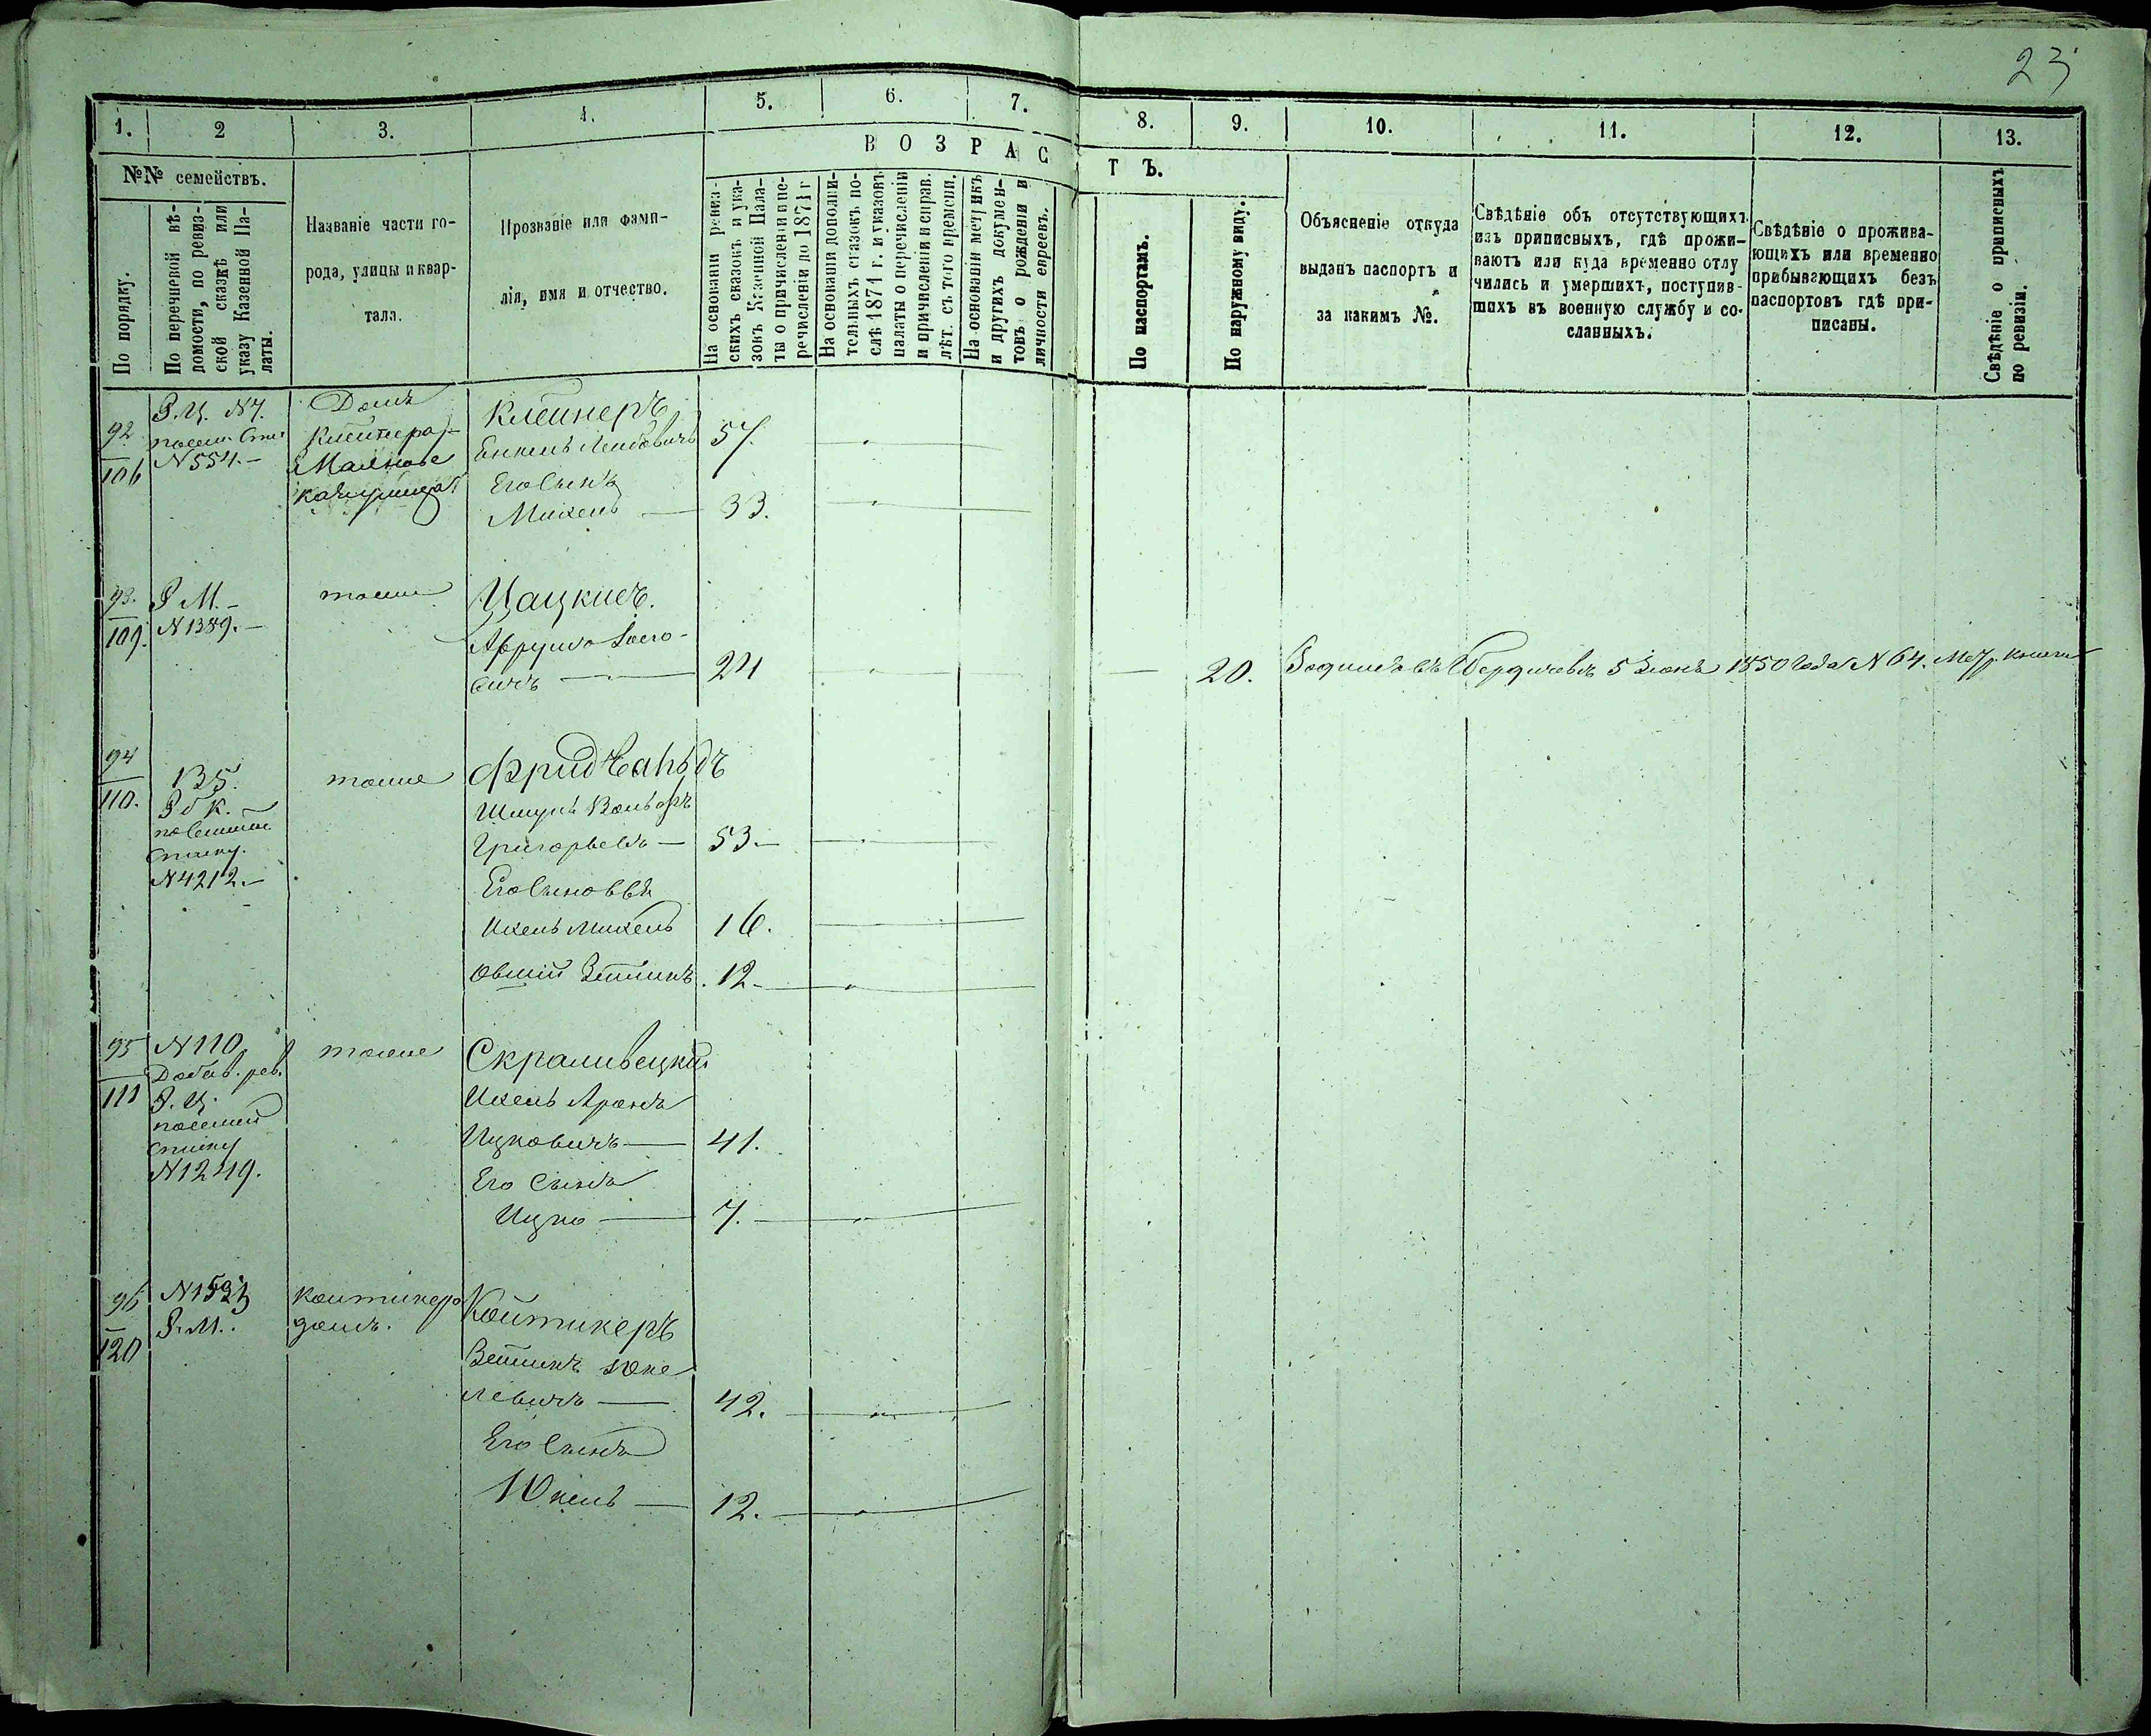 23
1. 2 3. 4. 5. 6. 7. 8. 9. 10. 11. 12. 13.
В О З Р А С Т Ъ.
№№ семействъ.
По порядку.
По перечневой вѣ-
домости, по ревиз-
ской сказкѣ или
указу Казенной Па-
латы.
Названіе части го-
рода, улицы и квар-
тала.
Прозваніе или фами-
лія, имя и отчество.
На основаніи ревиз-
скихъ сказокъ и ука-
зокъ Казенной Пала-
ты о причисленіи и пе-
речисленіи до 1871 г
На основаніи дополни-
тельныхъ сказокъ по-
слѣ 1871 г. и указовъ
палаты о перечисленіи
и причисленіи и справ.
лѣт. съ того времени.
На основаніи метрикъ
и другихъ докумен-
товъ о рожденіи и
личности евреевъ.
По паспортамъ.
По наружному виду.
Объясненіе откуда
выданъ паспортъ и
за какимъ №.
Свѣдѣніе объ отсутствующихъ
изъ приписныхъ, гдѣ прожи-
ваютъ или куда временно отлу
чились и умершихъ, поступив-
шихъ въ военную службу и со-
сланныхъ.
Свѣдѣніе о прожива-
ющихъ или временно
прибывающихъ безъ
паспортовъ гдѣ при-
писаны.
Свѣдѣніе о приписныхъ
по ревизіи.
92
106
Р.Ц. N7.
N554.-
Домъ
Клейнера
Клейнеръ
Лейбовичъ 57.
Его Сынъ
Михель 33.
93.
109.
Р М.-
N1389.-
тоже
Цацкисъ.
24 20. Бердичевъ 5 1850 года N 64.
94
110.
135.
Р б К.
списку.
N4212.-
тоже
Фридвальдъ
Шмуль Вольфъ
Григорьевъ — 53.-
Его Сыновья
Ихель Михель 16.
Овшій 12.-
95
111
N110
Добав. рев.
Р. Ц.
списку
N1249.
тоже
Скрашивецкій
Ихель Аронъ
Ицковичъ — 41.
Его Сынъ
Ицко — 7.-
96
120
Р.М.
домъ.
Койтикеръ
левичъ — 42.
Его Сынъ
Юкель — 12.